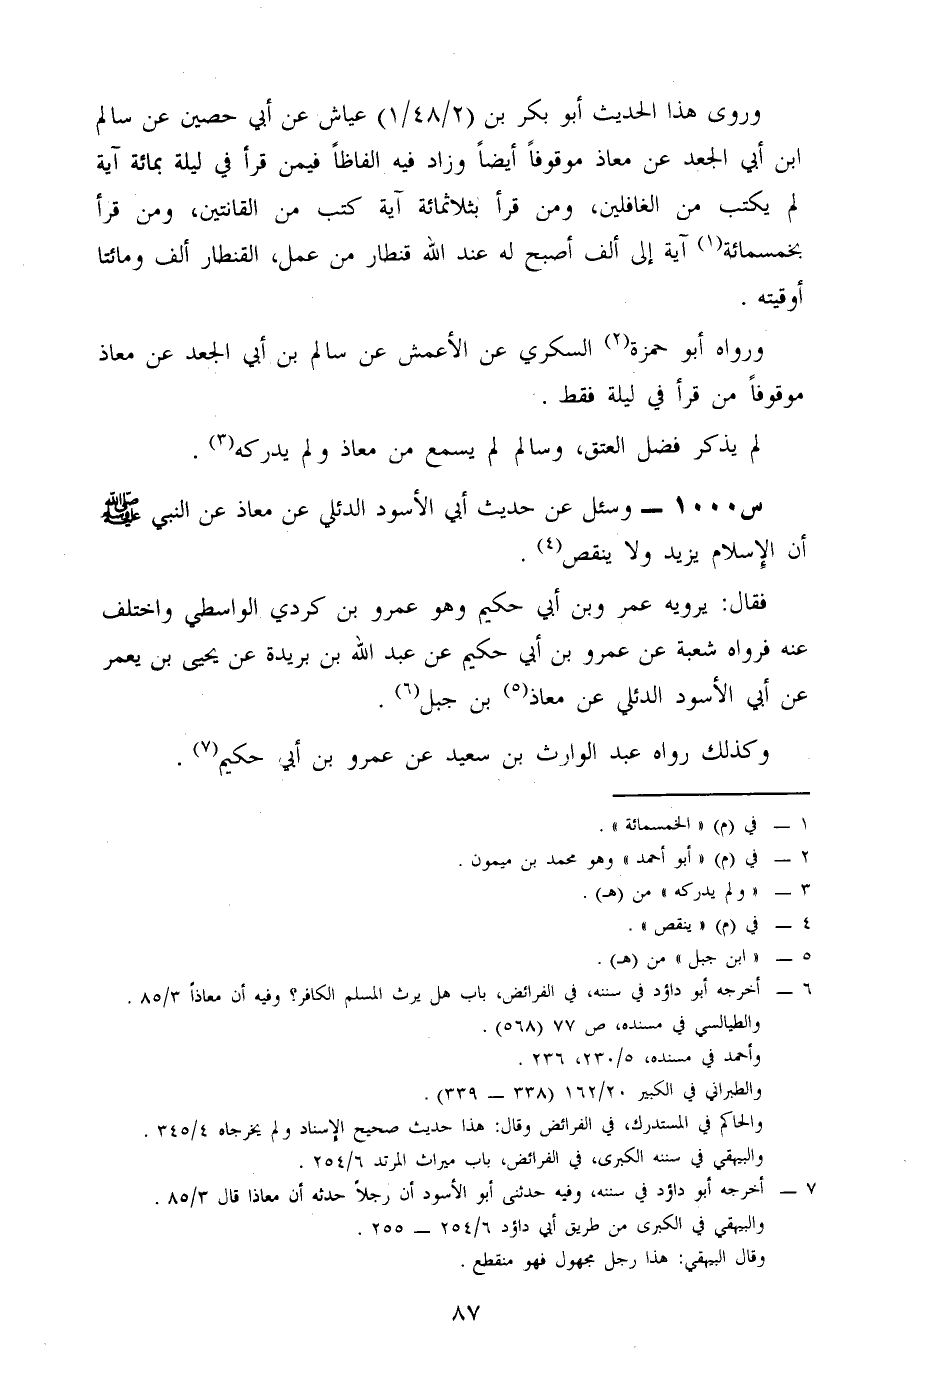 وروى هذا الحديث أبو بكر بن (١/٤٨/٢) عياش عن أبي حصين عن سالم
ابن أبي الجعد عن معاذ موقوفاً أيضاً وزاد فيه الفاظاً فيمن قرأ في ليلة بمائة آية
لم يكتب من الغافلين، ومن قرأ بثلاثمائة آية كتب من القانتين، ومن قرأ
بخمسمائة(١) آية إلى ألف أصبح له عند الله قنطار من عمل، القنطار ألف ومائتا
أوقيته .
ورواه أبو حمزة(٢) السكري عن الأعمش عن سالم بن أبي الجعد عن معاذ
موقوفاً من قرأ في ليلة فقط .
لم يذكر فضل العتق، وسالم لم يسمع من معاذ ولم يدركه(٣) .
س١٠٠٠ — وسئل عن حديث أبي الأسود الدئلي عن معاذ عن النبي ﷺ
أن الإسلام يزيد ولا ينقص(٤) .
فقال: يرويه عمر وبن أبي حكيم وهو عمرو بن كردي الواسطي واختلف
عنه فرواه شعبة عن عمرو بن أبي حكيم عن عبد الله بن بريدة عن يحيى بن يعمر
عن أبي الأسود الدئلي عن معاذ(٥) بن جبل(٦) .
وكذلك رواه عبد الوارث بن سعيد عن عمرو بن أبي حكيم(٧) .
١ — في (م) « الخمسمائة » .
٢ — في (م) « أبو أحمد » وهو محمد بن ميمون .
٣ — « ولم يدركه » من (هـ) .
٤ — في (م) « ينقص » .
٥ — « ابن جبل » من (هـ) .
٦ — أخرجه أبو داؤد في سننه، في الفرائض، باب هل يرث المسلم الكافر؟ وفيه أن معاذاً ٨٥/٣ .
والطيالسي في مسنده، ص ٧٧ (٥٦٨) .
وأحمد في مسنده، ٢٣٠/٥، ٢٣٦ .
والطبراني في الكبير ١٦٢/٢٠ (٣٣٨ — ٣٣٩) .
والحاكم في المستدرك، في الفرائض وقال: هذا حديث صحيح الإسناد ولم يخرجاه ٣٤٥/٤ .
والبيهقي في سننه الكبرى، في الفرائض، باب ميراث المرتد ٢٥٤/٦ .
٧ — أخرجه أبو داؤد في سننه، وفيه حدثنى أبو الأسود أن رجلاً حدثه أن معاذا قال ٨٥/٣ .
والبيهقي في الكبرى من طريق أبي داؤد ٢٥٤/٦ — ٢٥٥ .
وقال البيهقي: هذا رجل مجهول فهو منقطع .
٨٧